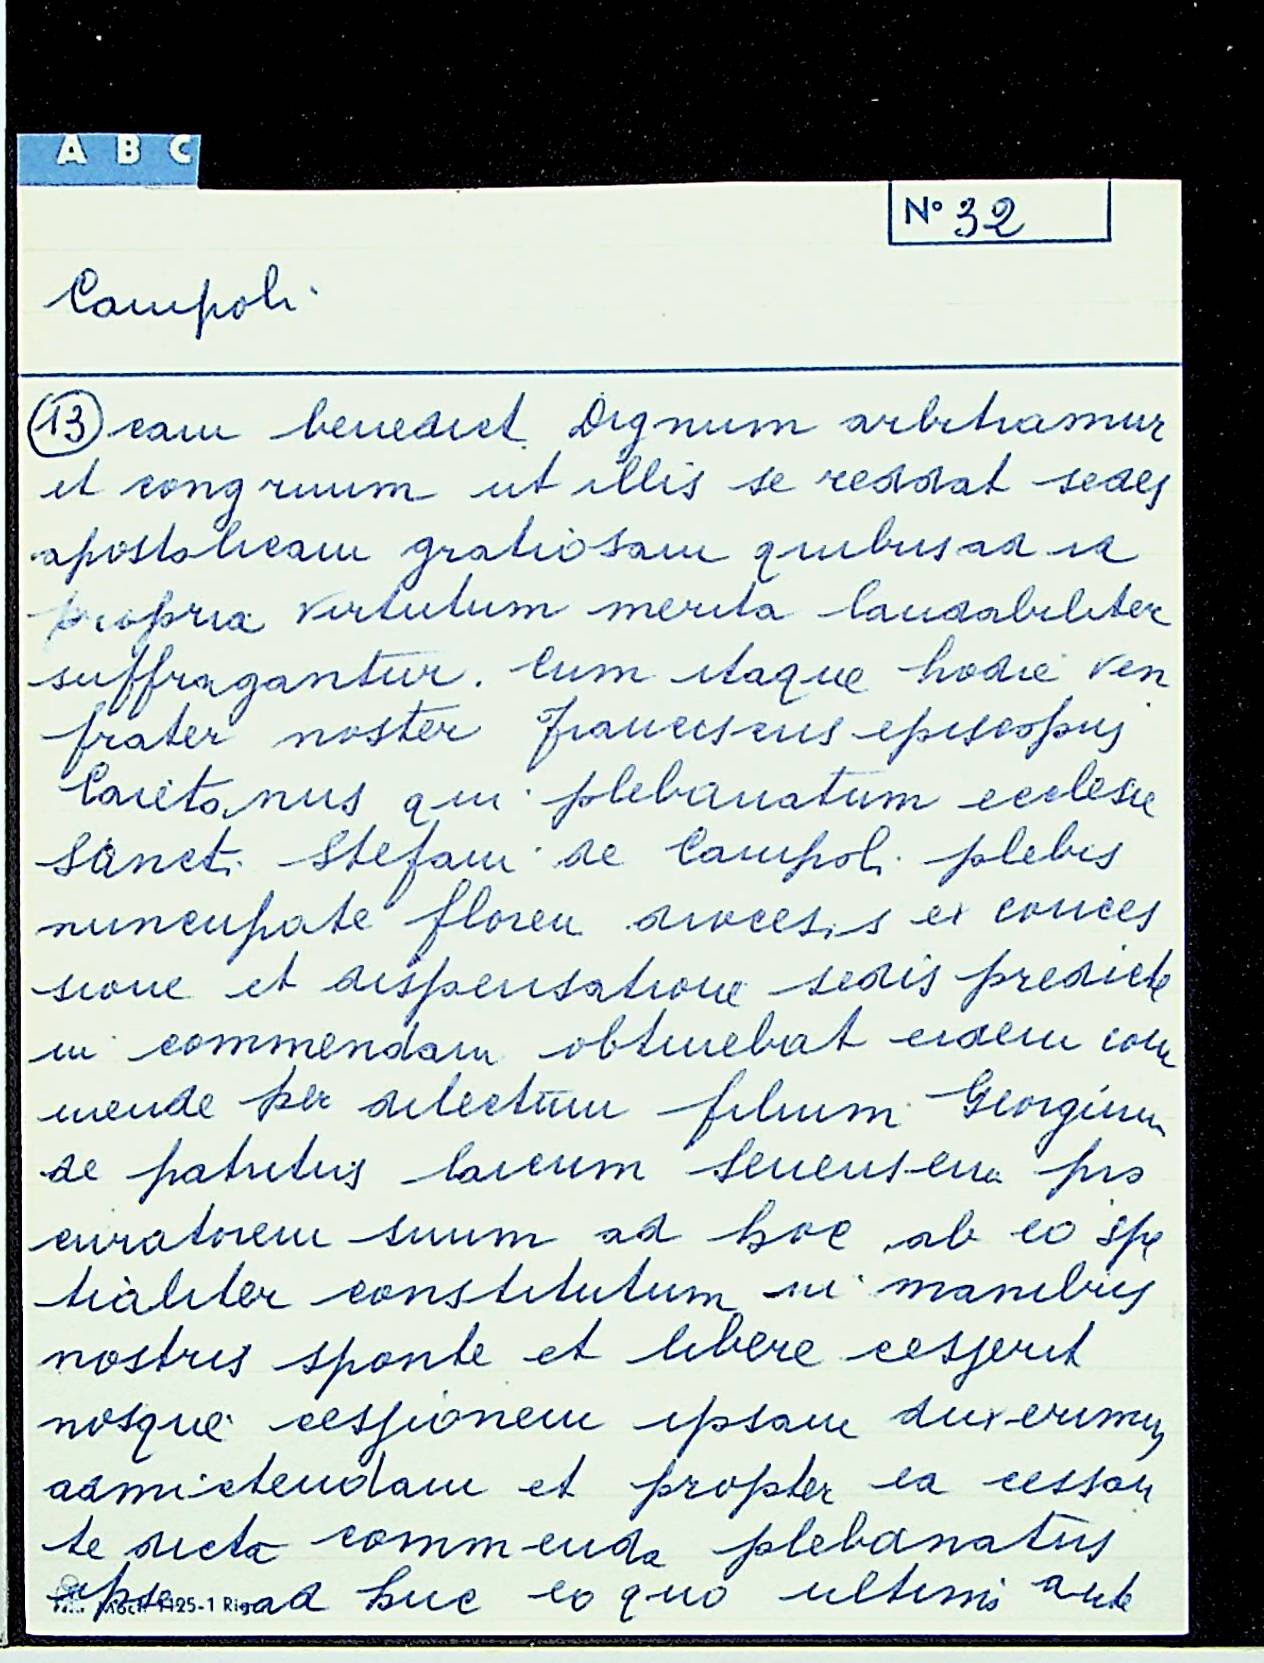 A B C
N° 32
Campoli
13 eam benedict Dignum arbitramur
et congruum ut illis se reddat sedes
apostolicam gratiosam quibus ad id
propria virtutum merita laudabiliter
suffragantur. Cum itaque hodie ven
frater noster Franciscus episcopus
qui plebanatum ecclesie
Sancti Stefani de Campoli plebis
nuncupate floren diocesis ex conces
sione et dispensatione sedis predicte
in commendam obtinebat eidem com
mende per dilectum filium Georgium
de patritiis laicum Senensem pro
curatorem suum ad hoc ab eo spe
tialiter constitutum in manibus
nostris sponte et libere cesserit
nosque cessionem ipsam duxerimus
admictendam et propter ea cessan
te dicta commenda plebanatus
ipse ad huc eo quo ultimi ante
1125-1